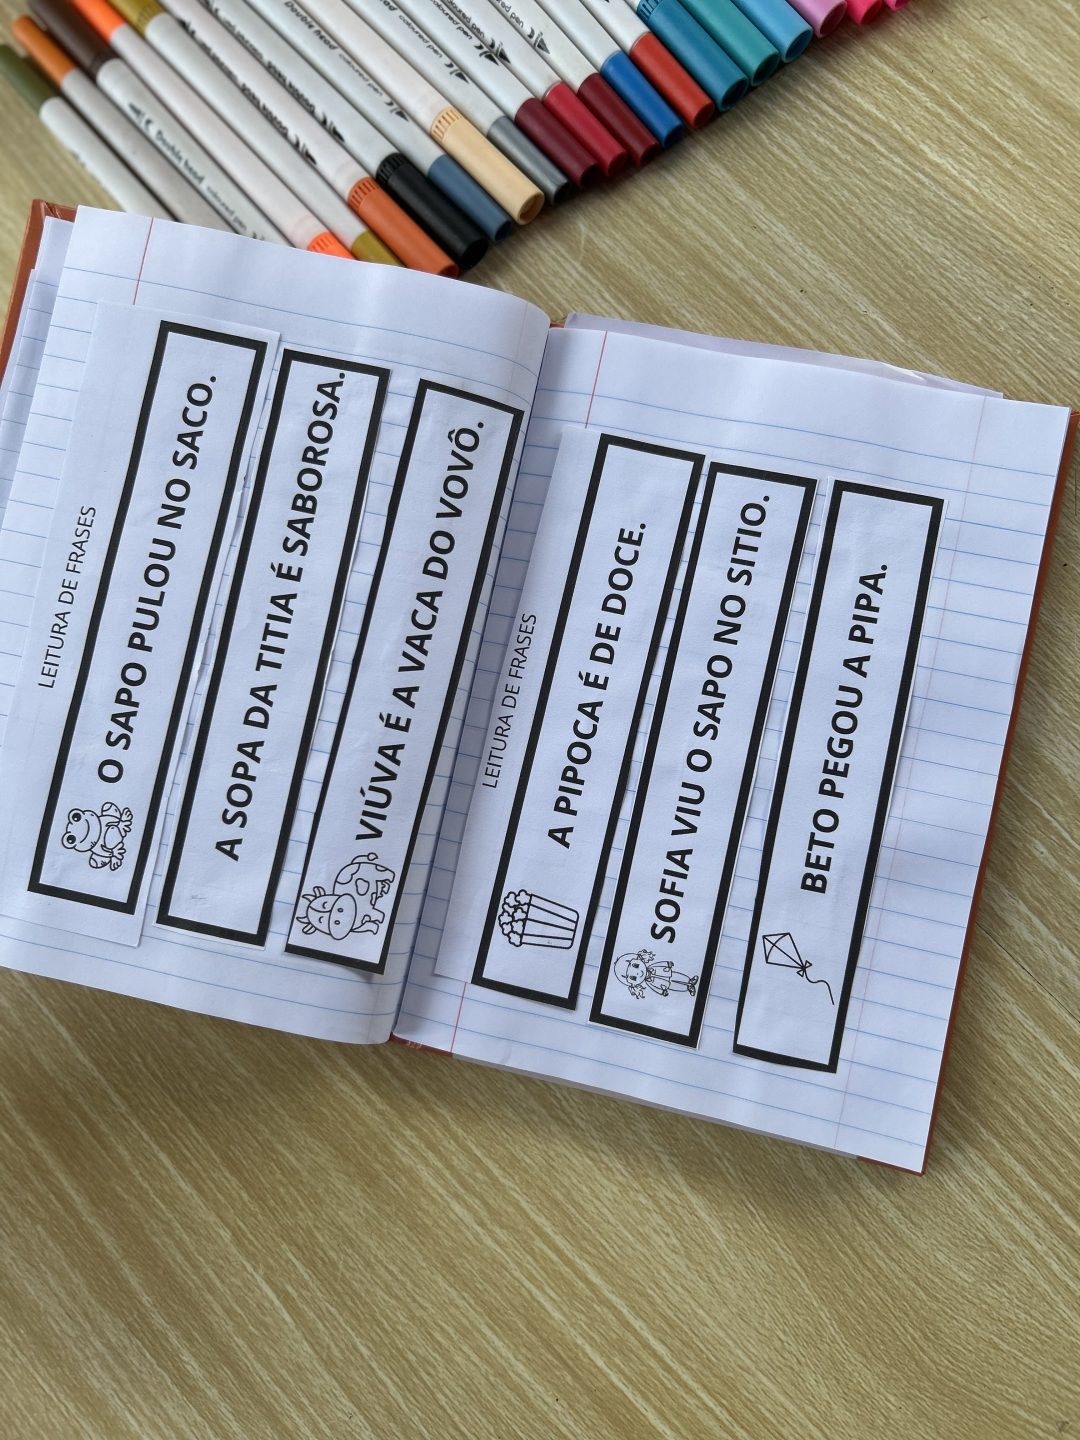 LEITURA DE FRASES
O SAPO PULOU NO SACO.
A SOPA DA TITIA É SABOROSA.
VIÚVA É A VACA DO VOVÔ.
LEITURA DE FRASES
A PIPOCA É DE DOCE.
SOFIA VIU O SAPO NO SITIO.
BETO PEGOU A PIPA.
Double head
coloured pen